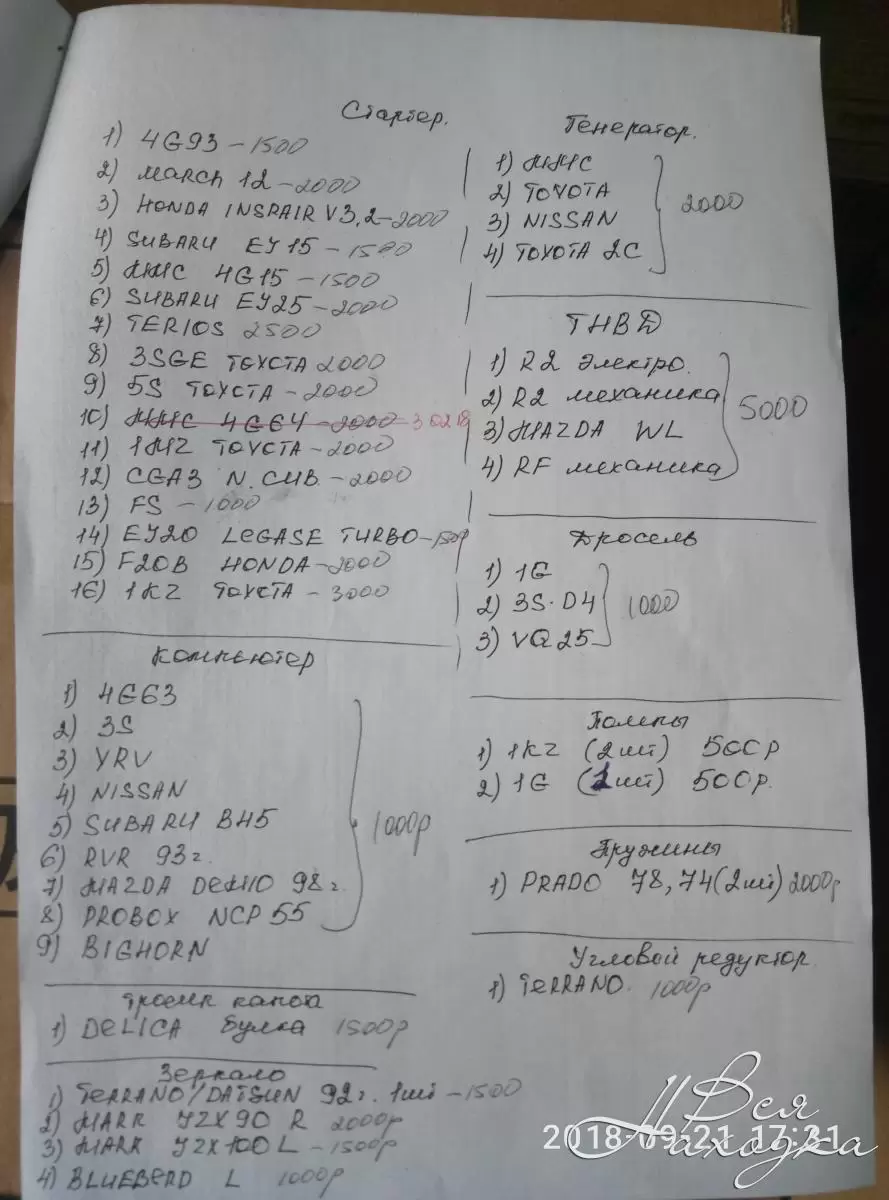 Стартер.
1) 4G93 - 1500
2) MARCH 12 - 2000
3) HONDA INSPAIR V3,2 - 2000
4) SUBARU EJ15 - 1500
5) MMC 4G15 - 1500
6) SUBARU EJ25 - 2000
7) TERIOS 2500
8) 3SGE TOYOTA 2000
9) 5S TOYOTA - 2000
10) MMC 4G64 - 2000
11) 1HZ TOYOTA - 2000
12) CGA3 N. CUB. - 2000
13) FS - 1000
14) EJ20 LEGASE TURBO - 1500р
15) F20B HONDA - 2000
16) 1KZ TOYOTA - 3000
Компьютер
1) 4G63
2) 3S
3) YRV
4) NISSAN
5) SUBARU BH5
6) RVR 93г.
7) MAZDA DEMIO 98г.
8) PROBOX NCP 55
9) BIGHORN
1000р
тросик капота
1) DELICA булка 1500р
Зеркало
1) TERRANO/DATSUN 92г. 1шт - 1500
2) MARK JZX90 R 2000р
3) MARK JZX100 L - 1500р
4) BLUEBERD L 1000р
Генератор.
1) MMC
2) TOYOTA
3) NISSAN
4) TOYOTA 2C
2000
ТНВД
1) R2 электро.
2) R2 механика
3) MAZDA WL
4) RF механика
5000
Дросель
1) 1G
2) 3S-D4
3) VQ25
1000
Помпы
1) 1KZ (2шт) 500р
2) 1G (1шт) 500р.
Пружины
1) PRADO 78,74 (2шт) 2000р
Угловой редуктор
1) TERRANO. 1000р
Вся
Находка
2018-09-21 17:31